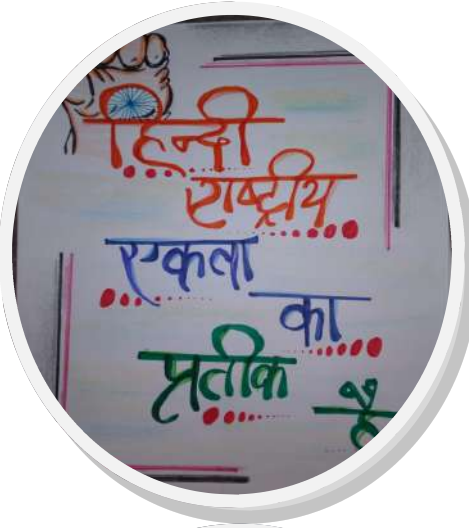 हिन्दी
राष्ट्रीय
एकता
का
प्रतीक
है